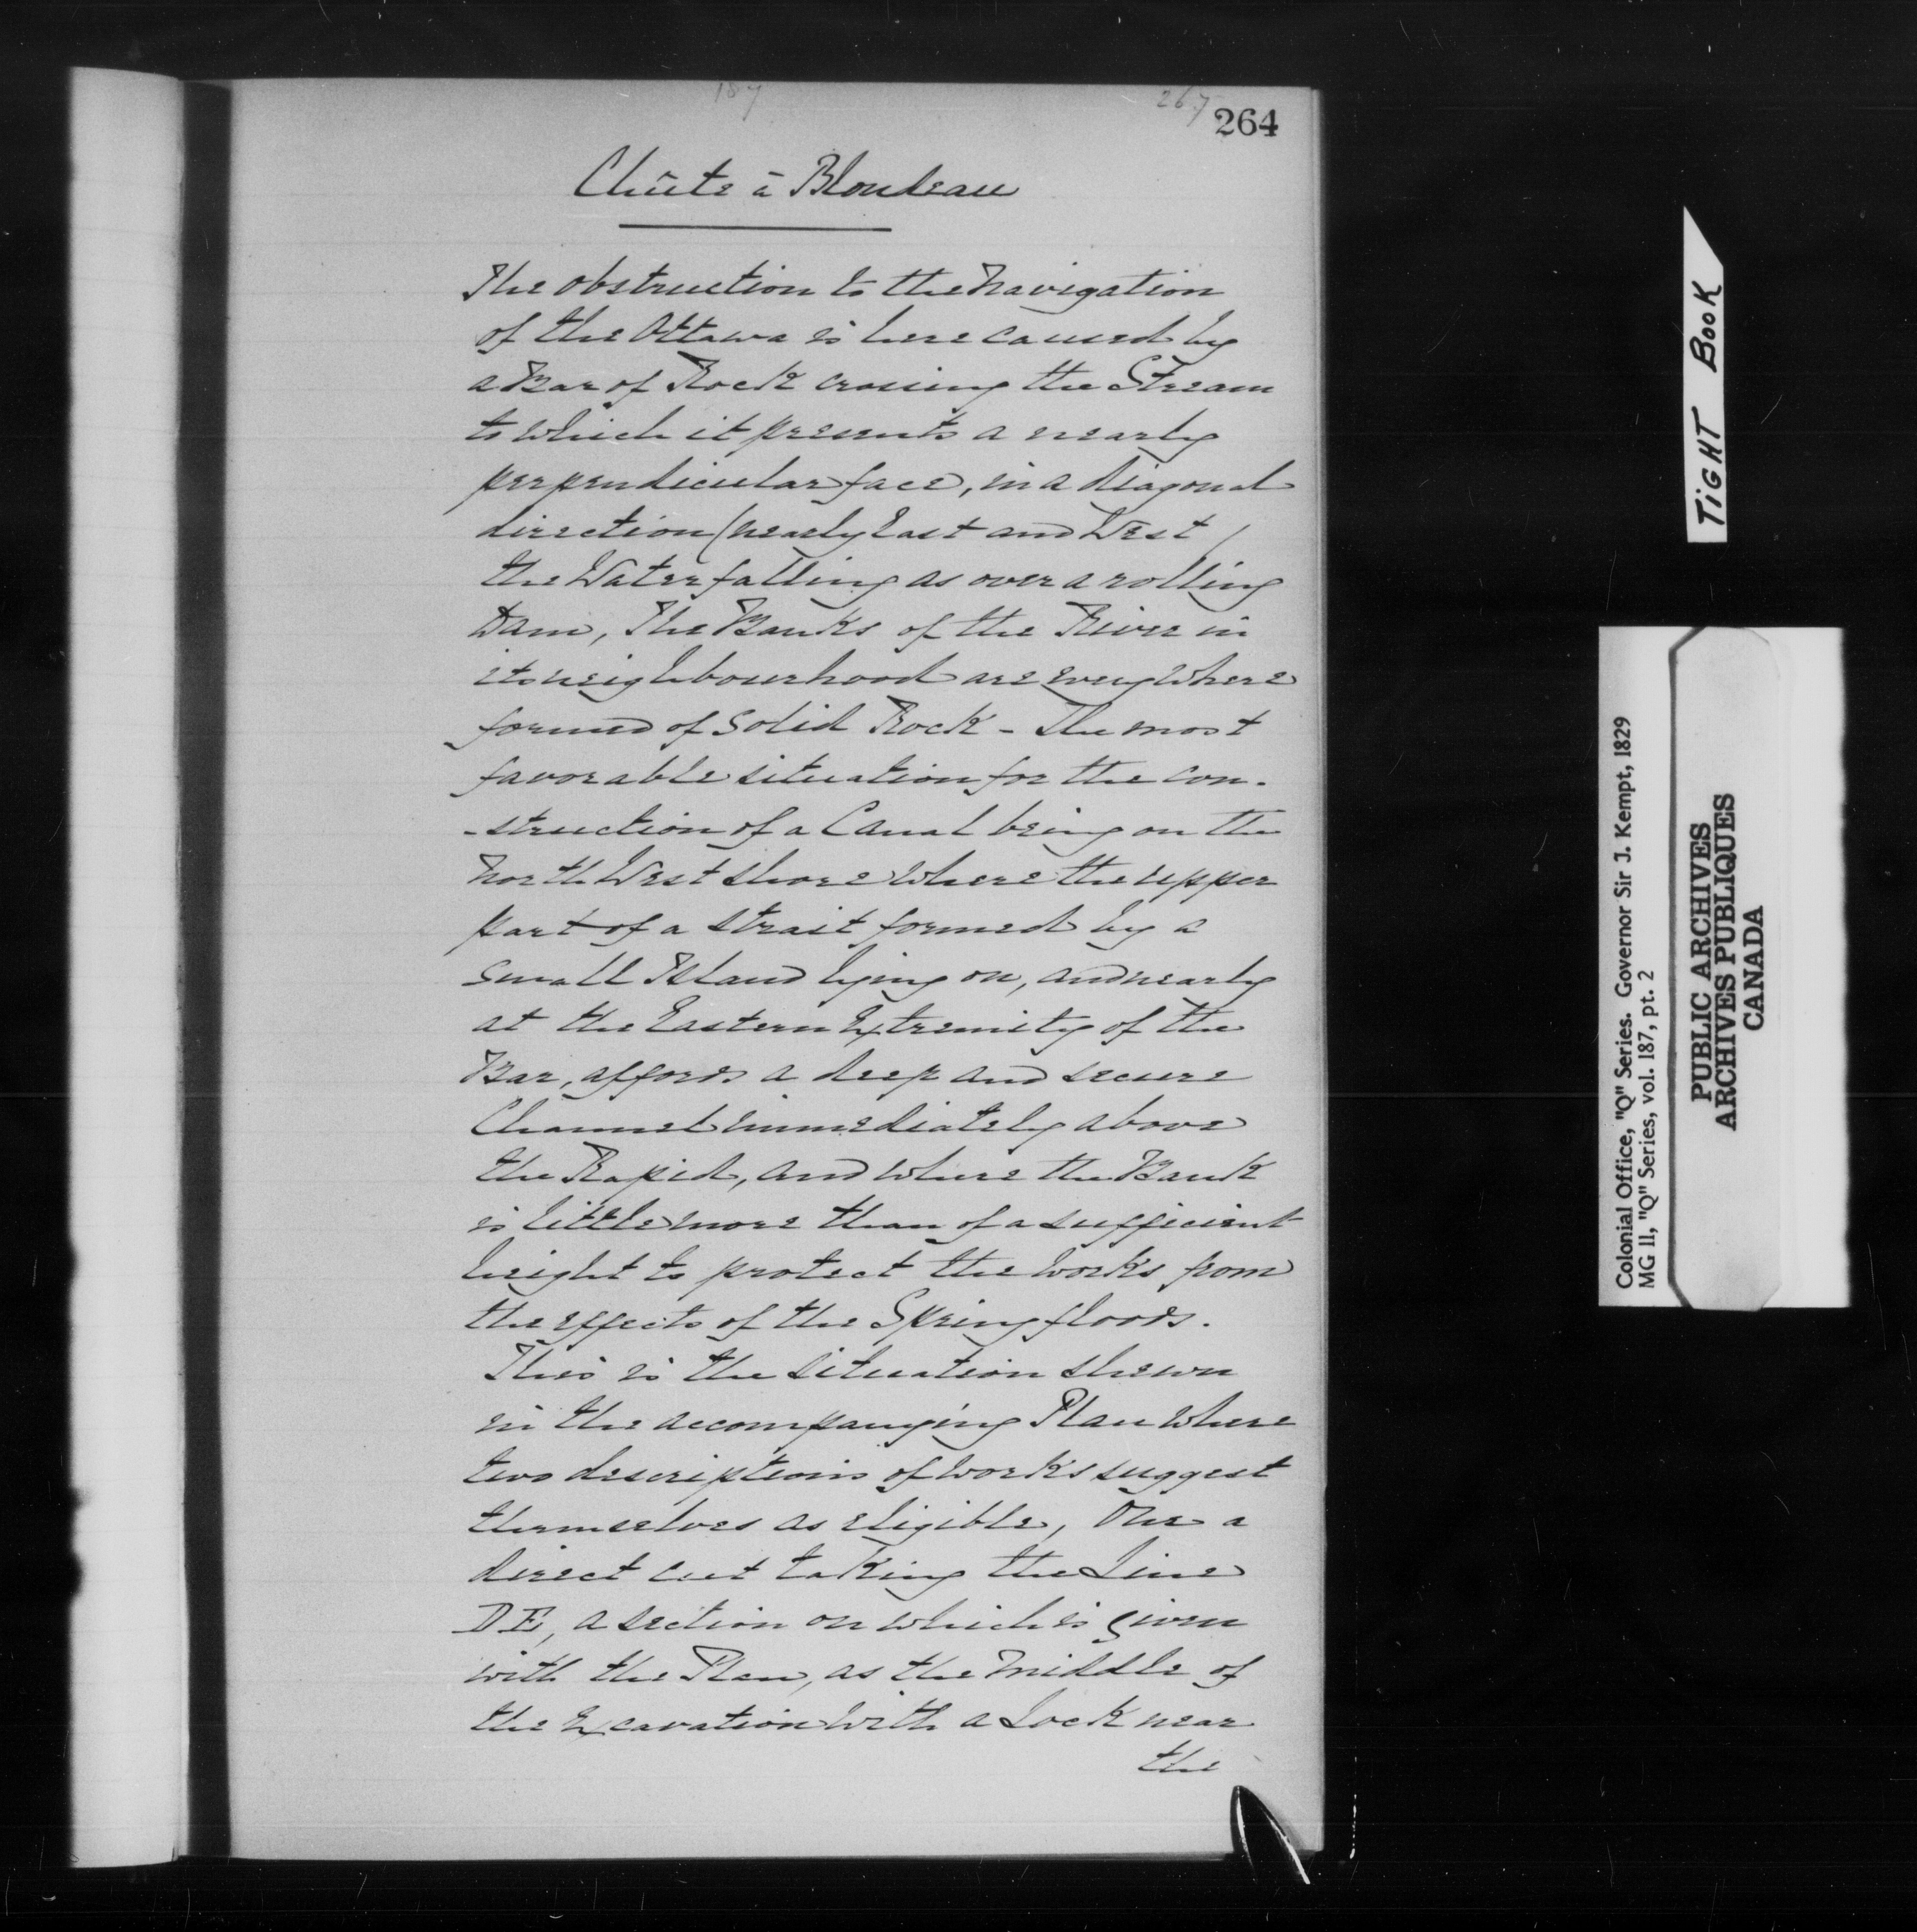 187
267
264
Chûte à Blondeau
The obstruction to the Navigation
of the Ottawa is here caused by
a Bar of Rock crossing the Stream
to which it presents a nearly
perpendicular face, in a diagonal
direction (nearly East and West /
the Water falling as over a rolling
Dam, The Banks of the River in
its neighbourhood are every where
formed of Solid Rock - The most
favorable situation for the con-
-struction of a Canal being on the
North West shore where the upper
part of a strait formed by a
small Island lying on, and nearly
at the Eastern Extremity of the
Bar, affords a deep and secure
Channel immediately above
the Rapid, and where the Bank
is little more than of a sufficient
height to protect the works from
the effects of the Spring floods.
This is the situation shewn
in the accompanying Plan where
two descriptions of works suggest
themselves as eligible, One a
direct cut taking the Line
D E, a section on which is given
with the Plan, as the Middle of
the Excavation with a Lock near
the
TIGHT BOOK
Colonial Office, "Q" Series. Governor Sir J. Kempt, 1829
MG 11, "Q" Series, vol. 187, pt. 2
PUBLIC ARCHIVES
ARCHIVES PUBLIQUES
CANADA